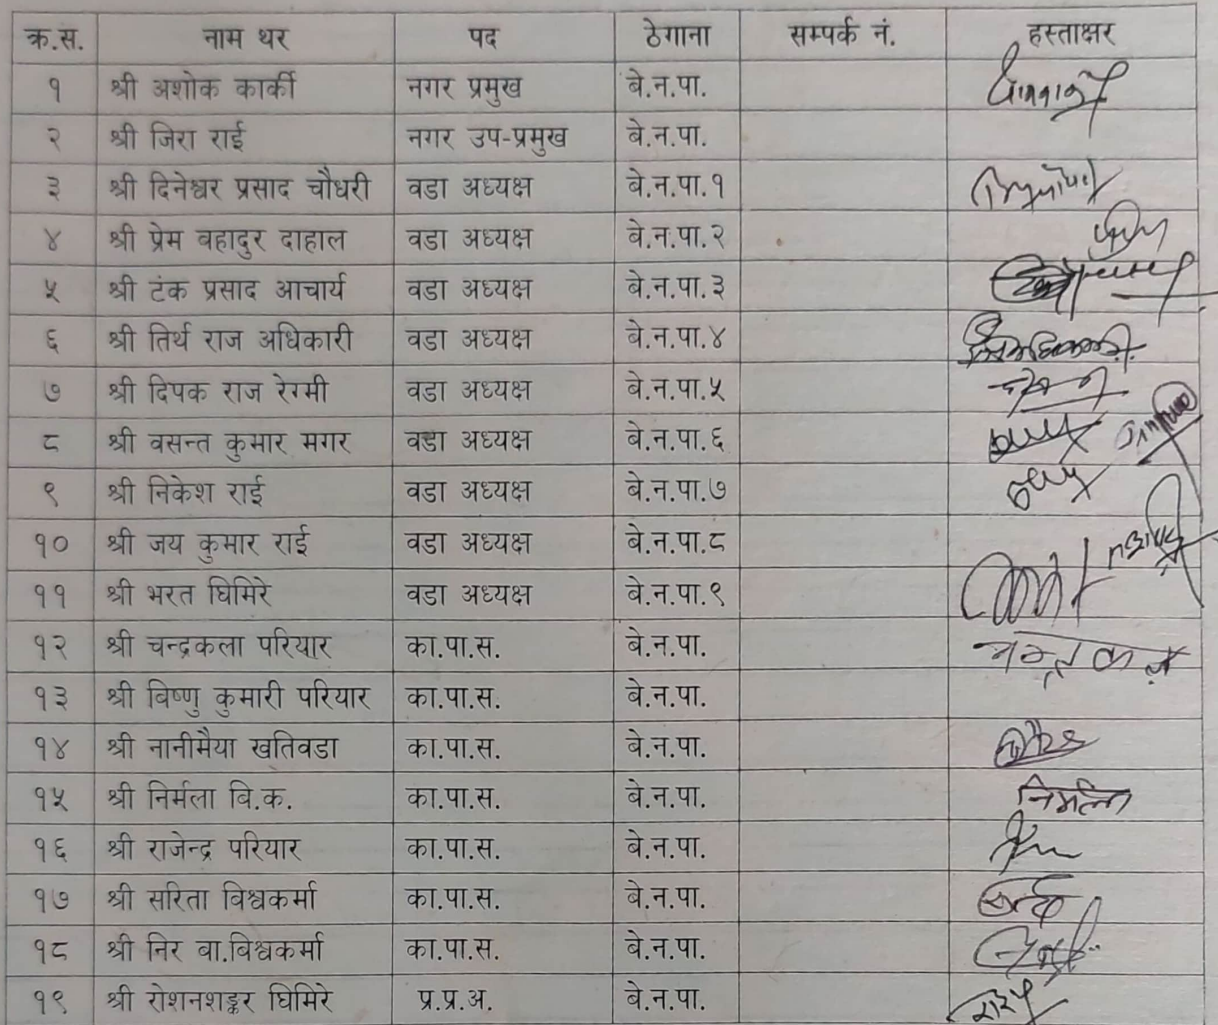 क्र.स. नाम थर पद ठेगाना सम्पर्क नं. हस्ताक्षर
१ श्री अशोक कार्की नगर प्रमुख बे.न.पा.
२ श्री जिरा राई नगर उप-प्रमुख बे.न.पा.
३ श्री दिनेश्वर प्रसाद चौधरी वडा अध्यक्ष बे.न.पा.१
४ श्री प्रेम बहादुर दाहाल वडा अध्यक्ष बे.न.पा.२
५ श्री टंक प्रसाद आचार्य वडा अध्यक्ष बे.न.पा.३
६ श्री तिर्थ राज अधिकारी वडा अध्यक्ष बे.न.पा.४
७ श्री दिपक राज रेग्मी वडा अध्यक्ष बे.न.पा.५
८ श्री वसन्त कुमार मगर वडा अध्यक्ष बे.न.पा.६
९ श्री निकेश राई वडा अध्यक्ष बे.न.पा.७
१० श्री जय कुमार राई वडा अध्यक्ष बे.न.पा.८
११ श्री भरत घिमिरे वडा अध्यक्ष बे.न.पा.९
१२ श्री चन्द्रकला परियार का.पा.स. बे.न.पा.
१३ श्री बिष्णु कुमारी परियार का.पा.स. बे.न.पा.
१४ श्री नानीमैया खतिवडा का.पा.स. बे.न.पा.
१५ श्री निर्मला बि.क. का.पा.स. बे.न.पा. निर्मला
१६ श्री राजेन्द्र परियार का.पा.स. बे.न.पा.
१७ श्री सरिता विश्वकर्मा का.पा.स. बे.न.पा.
१८ श्री निर बा.विश्वकर्मा का.पा.स. बे.न.पा.
१९ श्री रोशनशङ्कर घिमिरे प्र.प्र.अ. बे.न.पा.